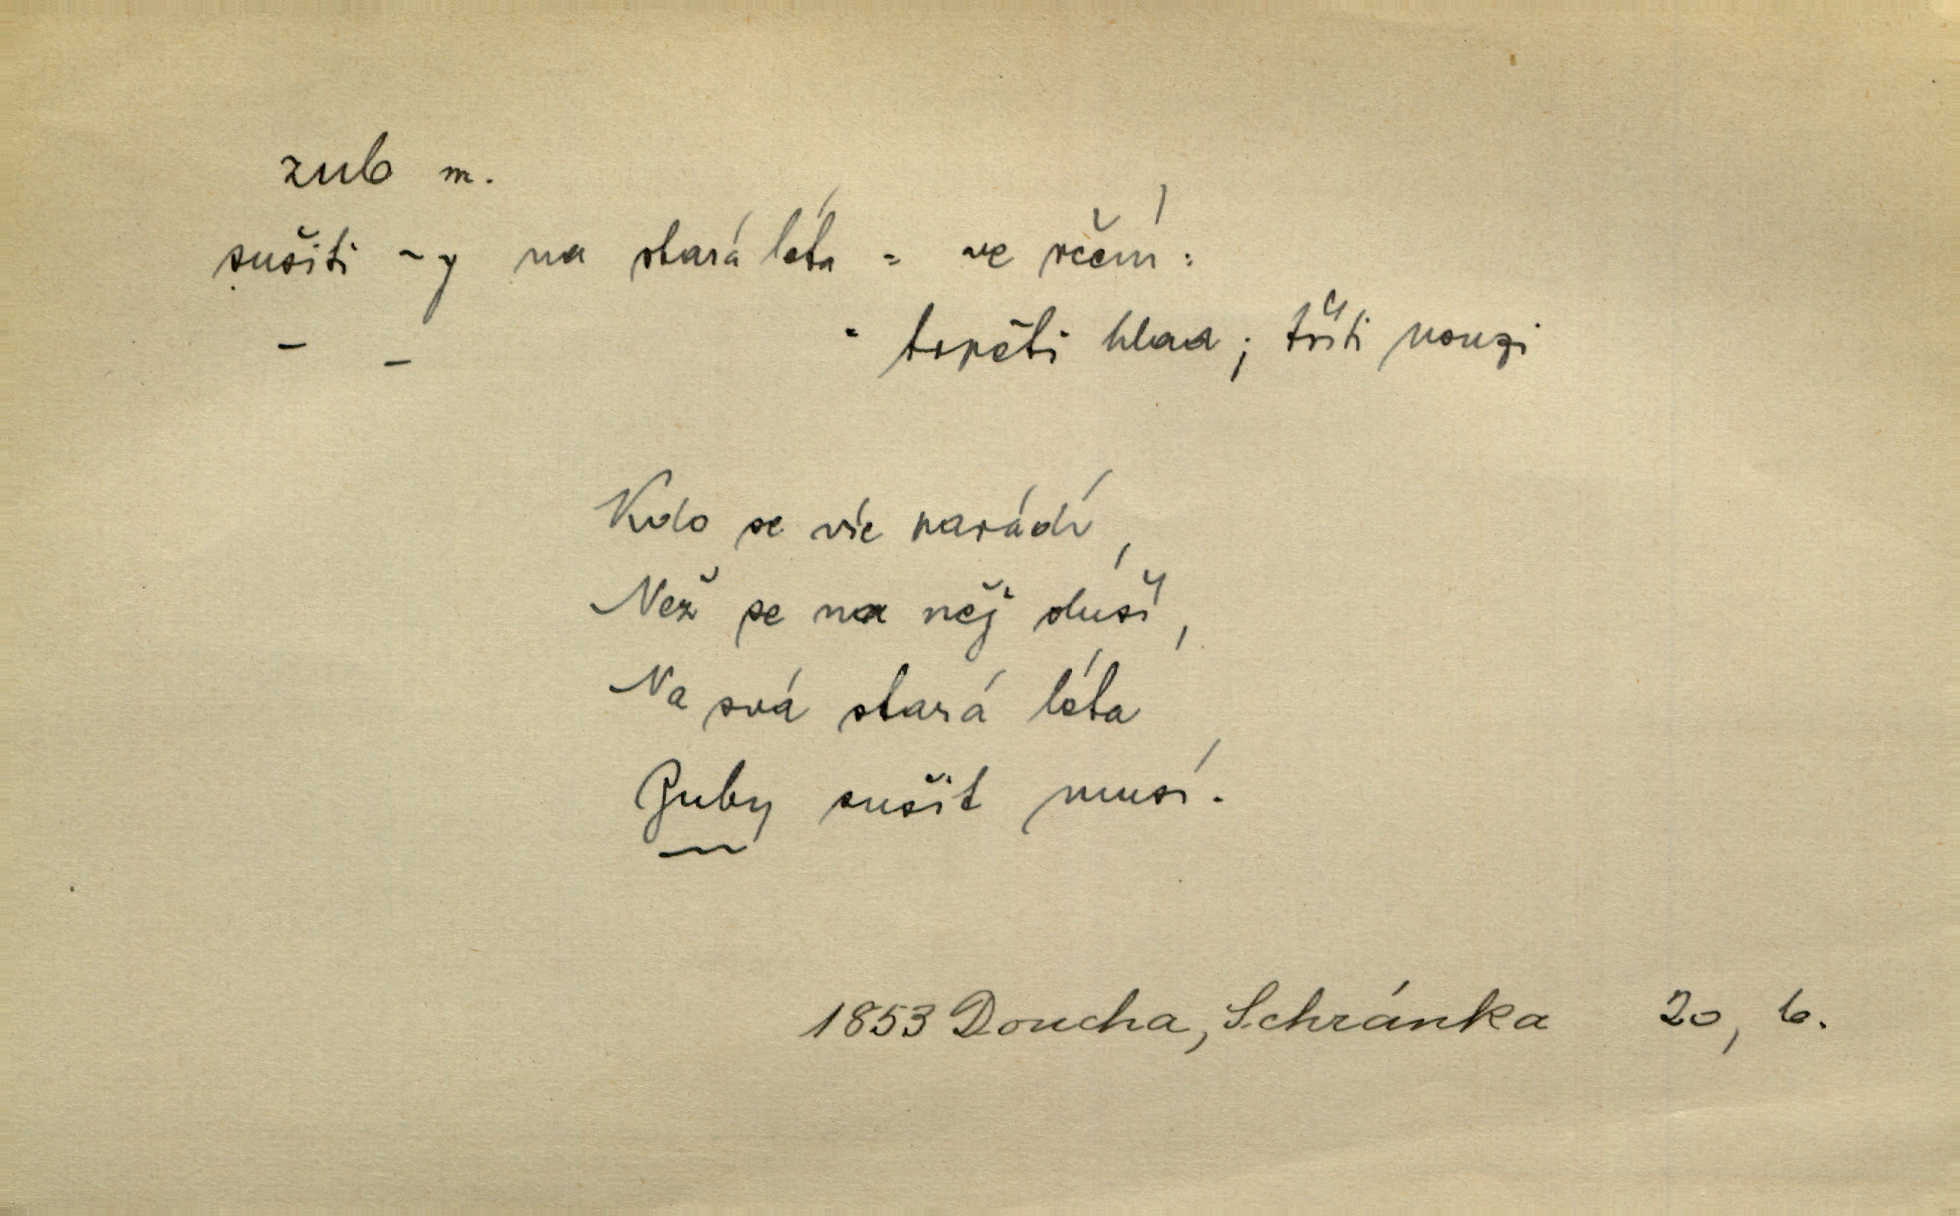 zub m.
sušiti ~y na stará léta = ve rčení:
– – = trpěti hlad; tříti nouzi
Kdo se víc parádí,
Než se na něj sluší,
Na svá stará léta
Zuby sušit musí.
1853 Doucha, Schránka 20, b.